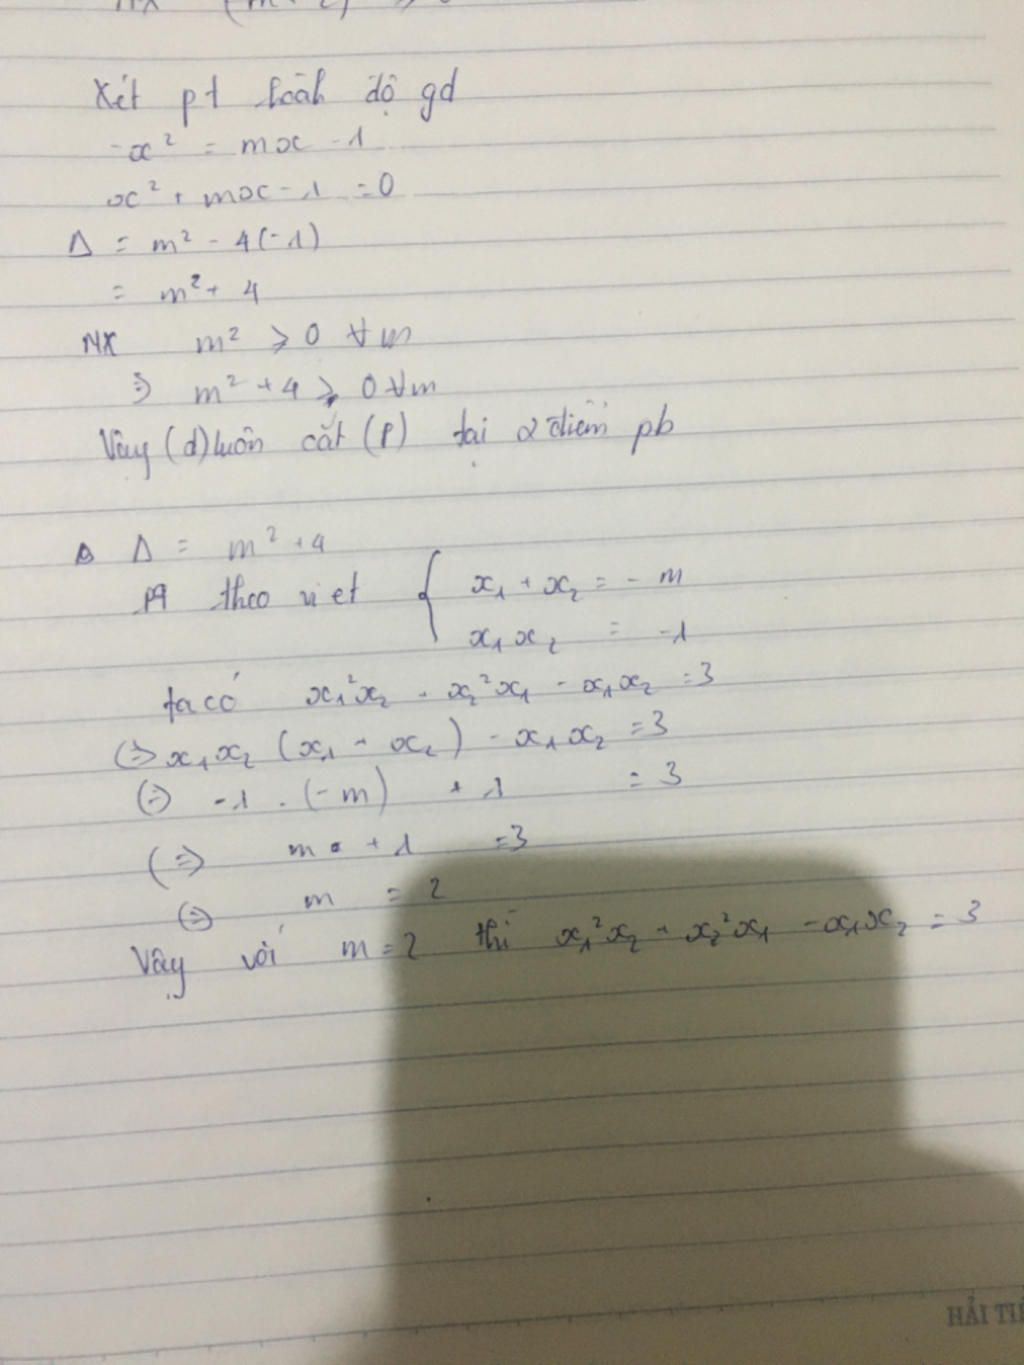 Xét pt hoành độ gd
-x² = mx - 1
x² + mx - 1 = 0
Δ = m² - 4(-1)
= m² + 4
NX m² ⩾ 0 ∀m
⇒ m² + 4 ⩾ 0 ∀m
Vậy (d) luôn cắt (P) tại 2 điểm pb
Δ = m² + 4
theo viet { x₁ + x₂ = - m
x₁x₂ = -1
ta có x₁²x₂ + x₂²x₁ - x₁x₂ = 3
(⇒ x₁x₂ (x₁ + x₂) - x₁x₂ = 3
(⇒) -1 . (-m) + 1 = 3
(⇒) m + 1 = 3
(⇒) m = 2
Vậy với m = 2 thì x₁²x₂ + x₂²x₁ - x₁x₂ = 3
HẢI TIẾ